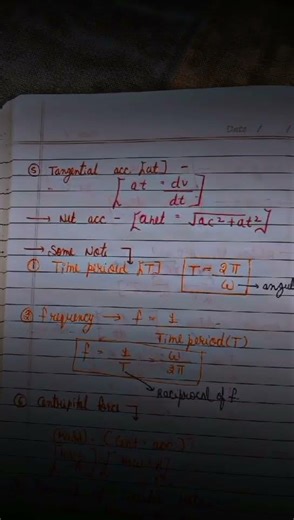 Date / /
⑤ Tangential acc [at] -
[at = dv/dt]
→ Net acc - [anet = √ac²+at²]
→ Some Note
① Time period [T] [T = 2π/ω] → angul
② frequency → f = 1/Time period (T)
f = 1/T = ω/2π
→ reciprocal of f
⑥ centripital force